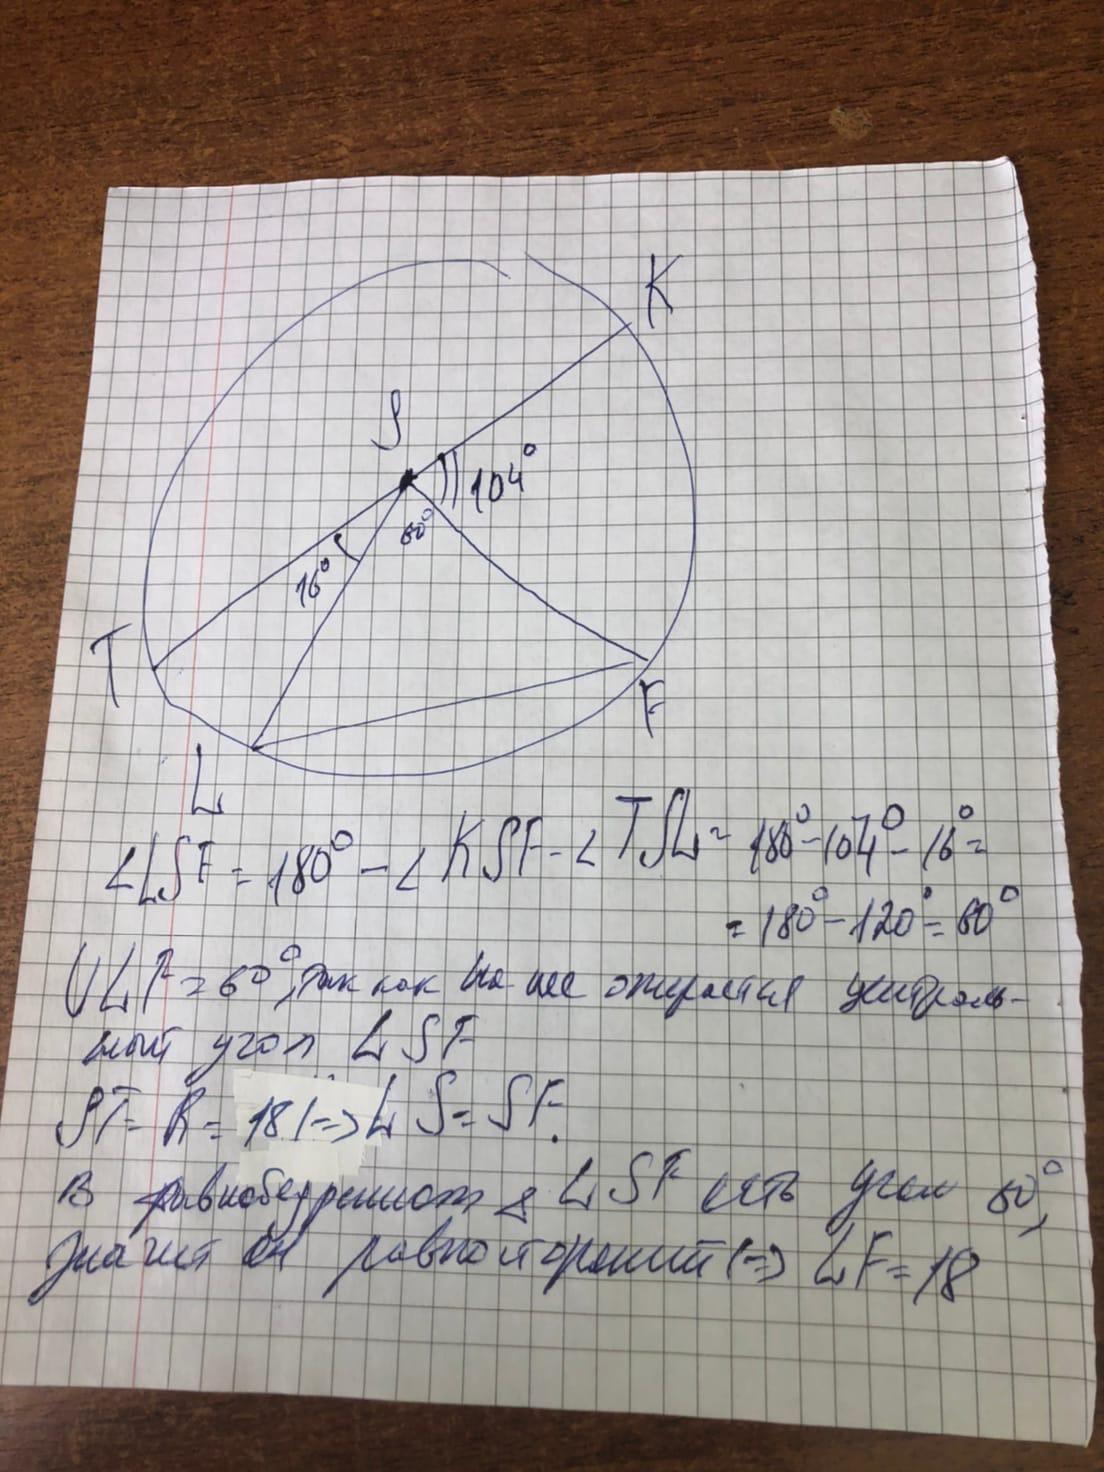 K
S
104°
60°
16°
T
F
L
∠LSF = 180° - ∠KSF - ∠TSL = 180° - 104° - 16° =
= 180° - 120° = 60°
∪LF = 60°, так как на нее опирается централь-
ный угол LSF
ST = R = 18 (=> LS = SF.
В равнобедренном △ LSF есть угол 60°,
значит он равносторонний (=> LF = 18